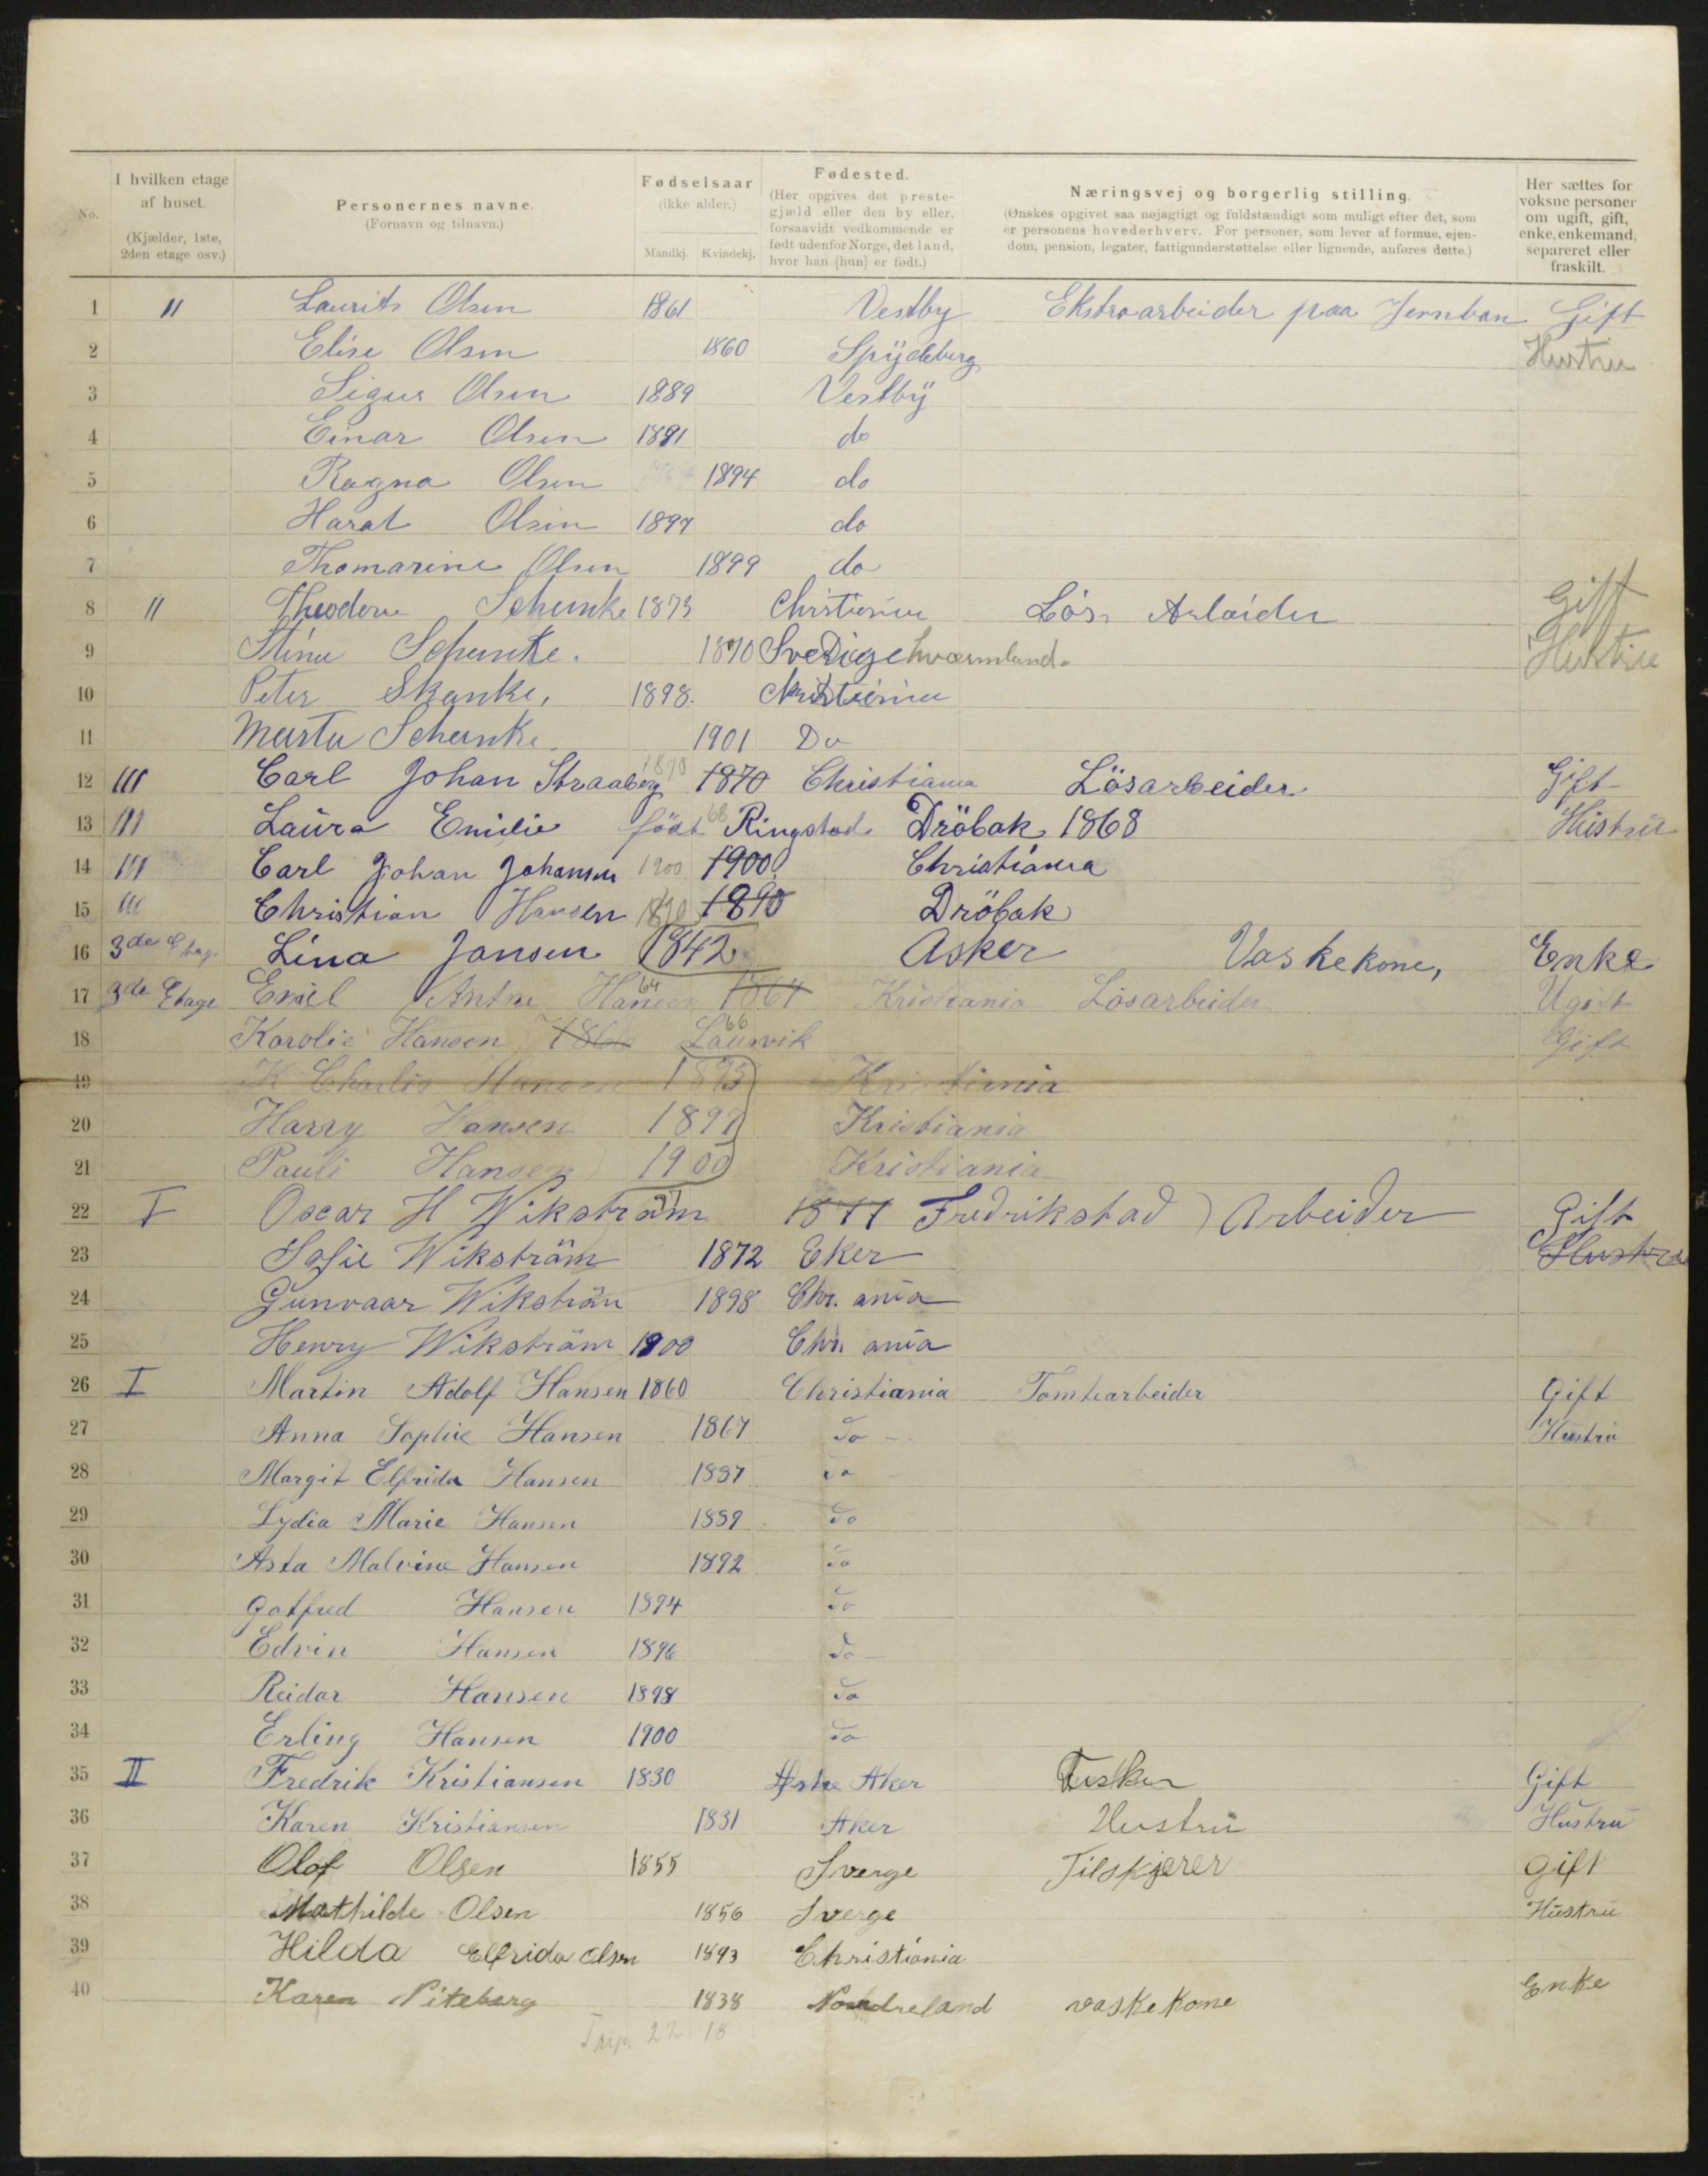 No. I hvilken etage af huset. (Kjælder, 1ste, 2den etage osv.) Personernes navne. (Fornavn og tilnavn.) Fødselsaar (ikke alder.) Mandkj. Kvindekj. Fødested. (Her opgives det prestegjæld eller den by eller, forsaavidt vedkommende er født udenfor Norge, det land, hvor han [hun] er født.) Næringsvej og borgerlig stilling. (Ønskes opgivet saa nøjagtigt og fuldstændigt som muligt efter det, som er personens hovederhverv. For personer, som lever af formue, ejendom, pension, legater, fattigunderstøttelse eller lignende, anføres dette.) Her sættes for voksne personer om ugift, gift, enke, enkemand, separeret eller fraskilt.
1 " Laurits Olsen 1861 Vestby Ekstraarbeider paa Jernban Gift
2 Elise Olsen 1860 Spydeberg Hustru
3 Sigur Olsen 1889 Vestby
4 Einar Olsen 1891 do
5 Ragna Olsen 1894 do
6 Harat Olsin 1897 do
7 Thomarine Olsen 1899 do
8 " Theodor Schunke 1873 Christiania Løs Arbaider Gift
9 Stina Schunke. 1870 Sverige hværmland. Hustru
10 Peter Skanke, 1898. Christiania
11 Marta Schanke. 1901 Do
12 III Carl Johan Straaberg 1870 1870 Christiania Lösarbeider Gift
13 III Laura Emilie födt 68 Ringstad Dröbak 1868 Hustru
14 III Carl Johan Johansen 1900 1900 Christiania
15 III Christian Hansen 1890 1890 Dröbak
16 3de Etag. Lina Jansen 1842 Asker Vaskekone, Enke
17 3de Etage Emil Anton Hansen 64 1864 Kristiania Lösarbeider Ugift
18 Karolie Hansen 1866 66 Laurvik Gift
19 K Charlis Hansen 1895 Kristiania
20 Harry Hansen 1897 Kristiania
21 Pauli Hansen 1900 Kristiania
22 I Oscar H Wikström 71 1871 Fredrikstad Arbeider Gift
23 Sofie Wikström 1872 Eker Hustru
24 Gunvaar Wikström 1898 Chr. ania
25 Henry Wikström 1900 Chr. ania
26 I Martin Adolf Hansen 1860 Christiania Tomtearbeider Gift
27 Anna Sophie Hansen 1867 do - Hustru
28 Margit Elfrida Hansen 1887 do -
29 Lydia Marie Hansen 1889 do
30 Asta Malvine Hansen 1892 do
31 Gotfred Hansen 1894 do
32 Edvin Hansen 1896 do -
33 Reidar Hansen 1898 do
34 Erling Hansen 1900 do
35 II Fredrik Kristiansen 1830 Østre Aker Fisker Gift
36 Karen Kristiansen 1831 Aker Hustru Hustru
37 Olof Olsen 1855 Sverge Tilskjerer Gift
38 Mathilde Olsen 1856 Sverge Hustru
39 Hilda Elfrida Olsen 1893 Christiania
40 Karen Piteberg 1838 Nordreland vaskekone Enke
22 18